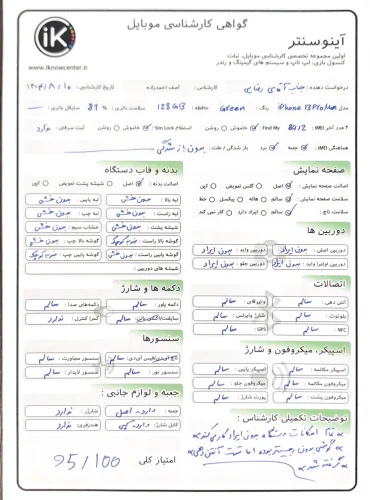 گواهی کارشناسی موبایل
آینوسنتر
اولین مجموعه تخصصی کارشناسی موبایل، تبلت
کنسول بازی، لپ تاپ و سیستم های گیمینگ و رندر
iK
www.iknowcenter.ir
درخواست دهنده : جناب آقای رضایی کارشناس : آصف احمدزاده تاریخ کارشناسی :
مدل : iPhone 13 Pro Max رنگ : Green حافظه : 128GB سلامت باتری : 89 % سایکل باتری :
۴ عدد آخر IMEI : 8912 Find My : خاموش روشن استعلام Sim Lock : خاموش روشن ثبت سرقتی : ندارد
هماهنگی IMEI : جعبه برد باز شدگی / علت : بدون بازشدگی
صفحه نمایش
اصالت صفحه نمایش : اصل گلس تعویض کپی
سلامت صفحه نمایش : سالم هاله پیکسل خط
سلامت تاچ : سالم ایراد دارد کار نمی کند
دوربین ها
دوربین اصلی : بدون ایراد دوربین واید : بدون ایراد
دوربین اولترا واید : بدون ایراد دوربین جلو : بدون ایراد
اتصالات
آنتن دهی : سالم وای فای : سالم
بلوتوث : سالم شارژ وایرلس : سالم
NFC : سالم GPS : سالم
اسپیکر، میکروفون و شارژ
اسپیکر مکالمه : سالم اسپیکر پایین : سالم
میکروفون مکالمه : سالم میکروفون جلو : سالم
میکروفون پشت : سالم پورت شارژ : سالم
توضیحات تکمیلی کارشناس :
تمام امکانات دستگاه بدون ایراد کار می کند
گوشی بدون رجیستر بوده اما تست آنتن دهی
گرفته شد
بدنه و قاب دستگاه
اصالت بدنه : اصل شیشه پشت تعویض کپی
لبه بالا : بدون خش لبه پایین : بدون خش
لبه راست : بدون خش لبه چپ : بدون خش
شیشه پشت : بدون خش خشاب سیم : بدون خش
گوشه بالا راست : ضربه کوچک گوشه بالا چپ : بدون خش
گوشه پایین راست : بدون خش گوشه پایین چپ : ضربه کوچک
شیشه های دوربین :
دکمه ها و شارژ
دکمه پاور : سالم دکمه‌های صدا : سالم
سالم کمرا کنترل : ندارد
سنسورها
سالم سنسور مجاورت : سالم
سنسور نور : سالم سنسور لایدار : سالم
جعبه و لوازم جانبی :
جعبه : دارد اصل شارژر : ندارد
کابل شارژ : دارد کپی هندزفری : ندارد
امتیاز کلی 95/100